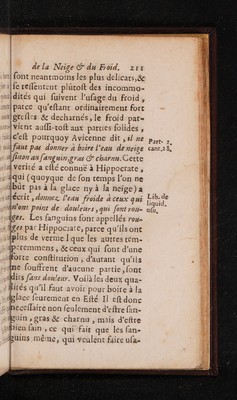 de la Neige & du Froid. 211
sont neantmoins les plus delicats, &
se ressentent plûtost des incommo-
ditez qui suivent l'usage du froid,
parce qu'estant ordinairement fort
gresles & decharnés, le froid par-
vient aussi-tost aux parties solides,
c'est pourquoy Avicenne dit, il ne
faut pas donner à boire l'eau de neige
sinon au sanguin, gras & charnu. Cette
Part. 2.
cant. 28.
verité a esté connuë à Hippocrate,
qui (quoyque de son temps l'on ne
bût pas à la glace ny à la neige) a
écrit, donnez, l'eau froide à ceux qui
n'ont point de douleurs, qui sont rou-
Lib. de
liquid.
usu.
ges. Les sanguins sont appellés rou-
ges par Hippocrate, parce qu'ils ont
plus de vermeil que les autres tem-
peremmens, & ceux qui sont d'une
forte constitution, d'autant qu'ils
ne souffrent d'aucune partie, sont
dits sans douleur. Voilà les deux qua-
litez qu'il faut avoir pour boire à la
glace seurement en Esté Il est donc
necessaire non seulement d'estre san-
guin, gras & charnu, mais d'estre
bien sain, ce qui fait que les san-
guins même, qui veulent faire usa-